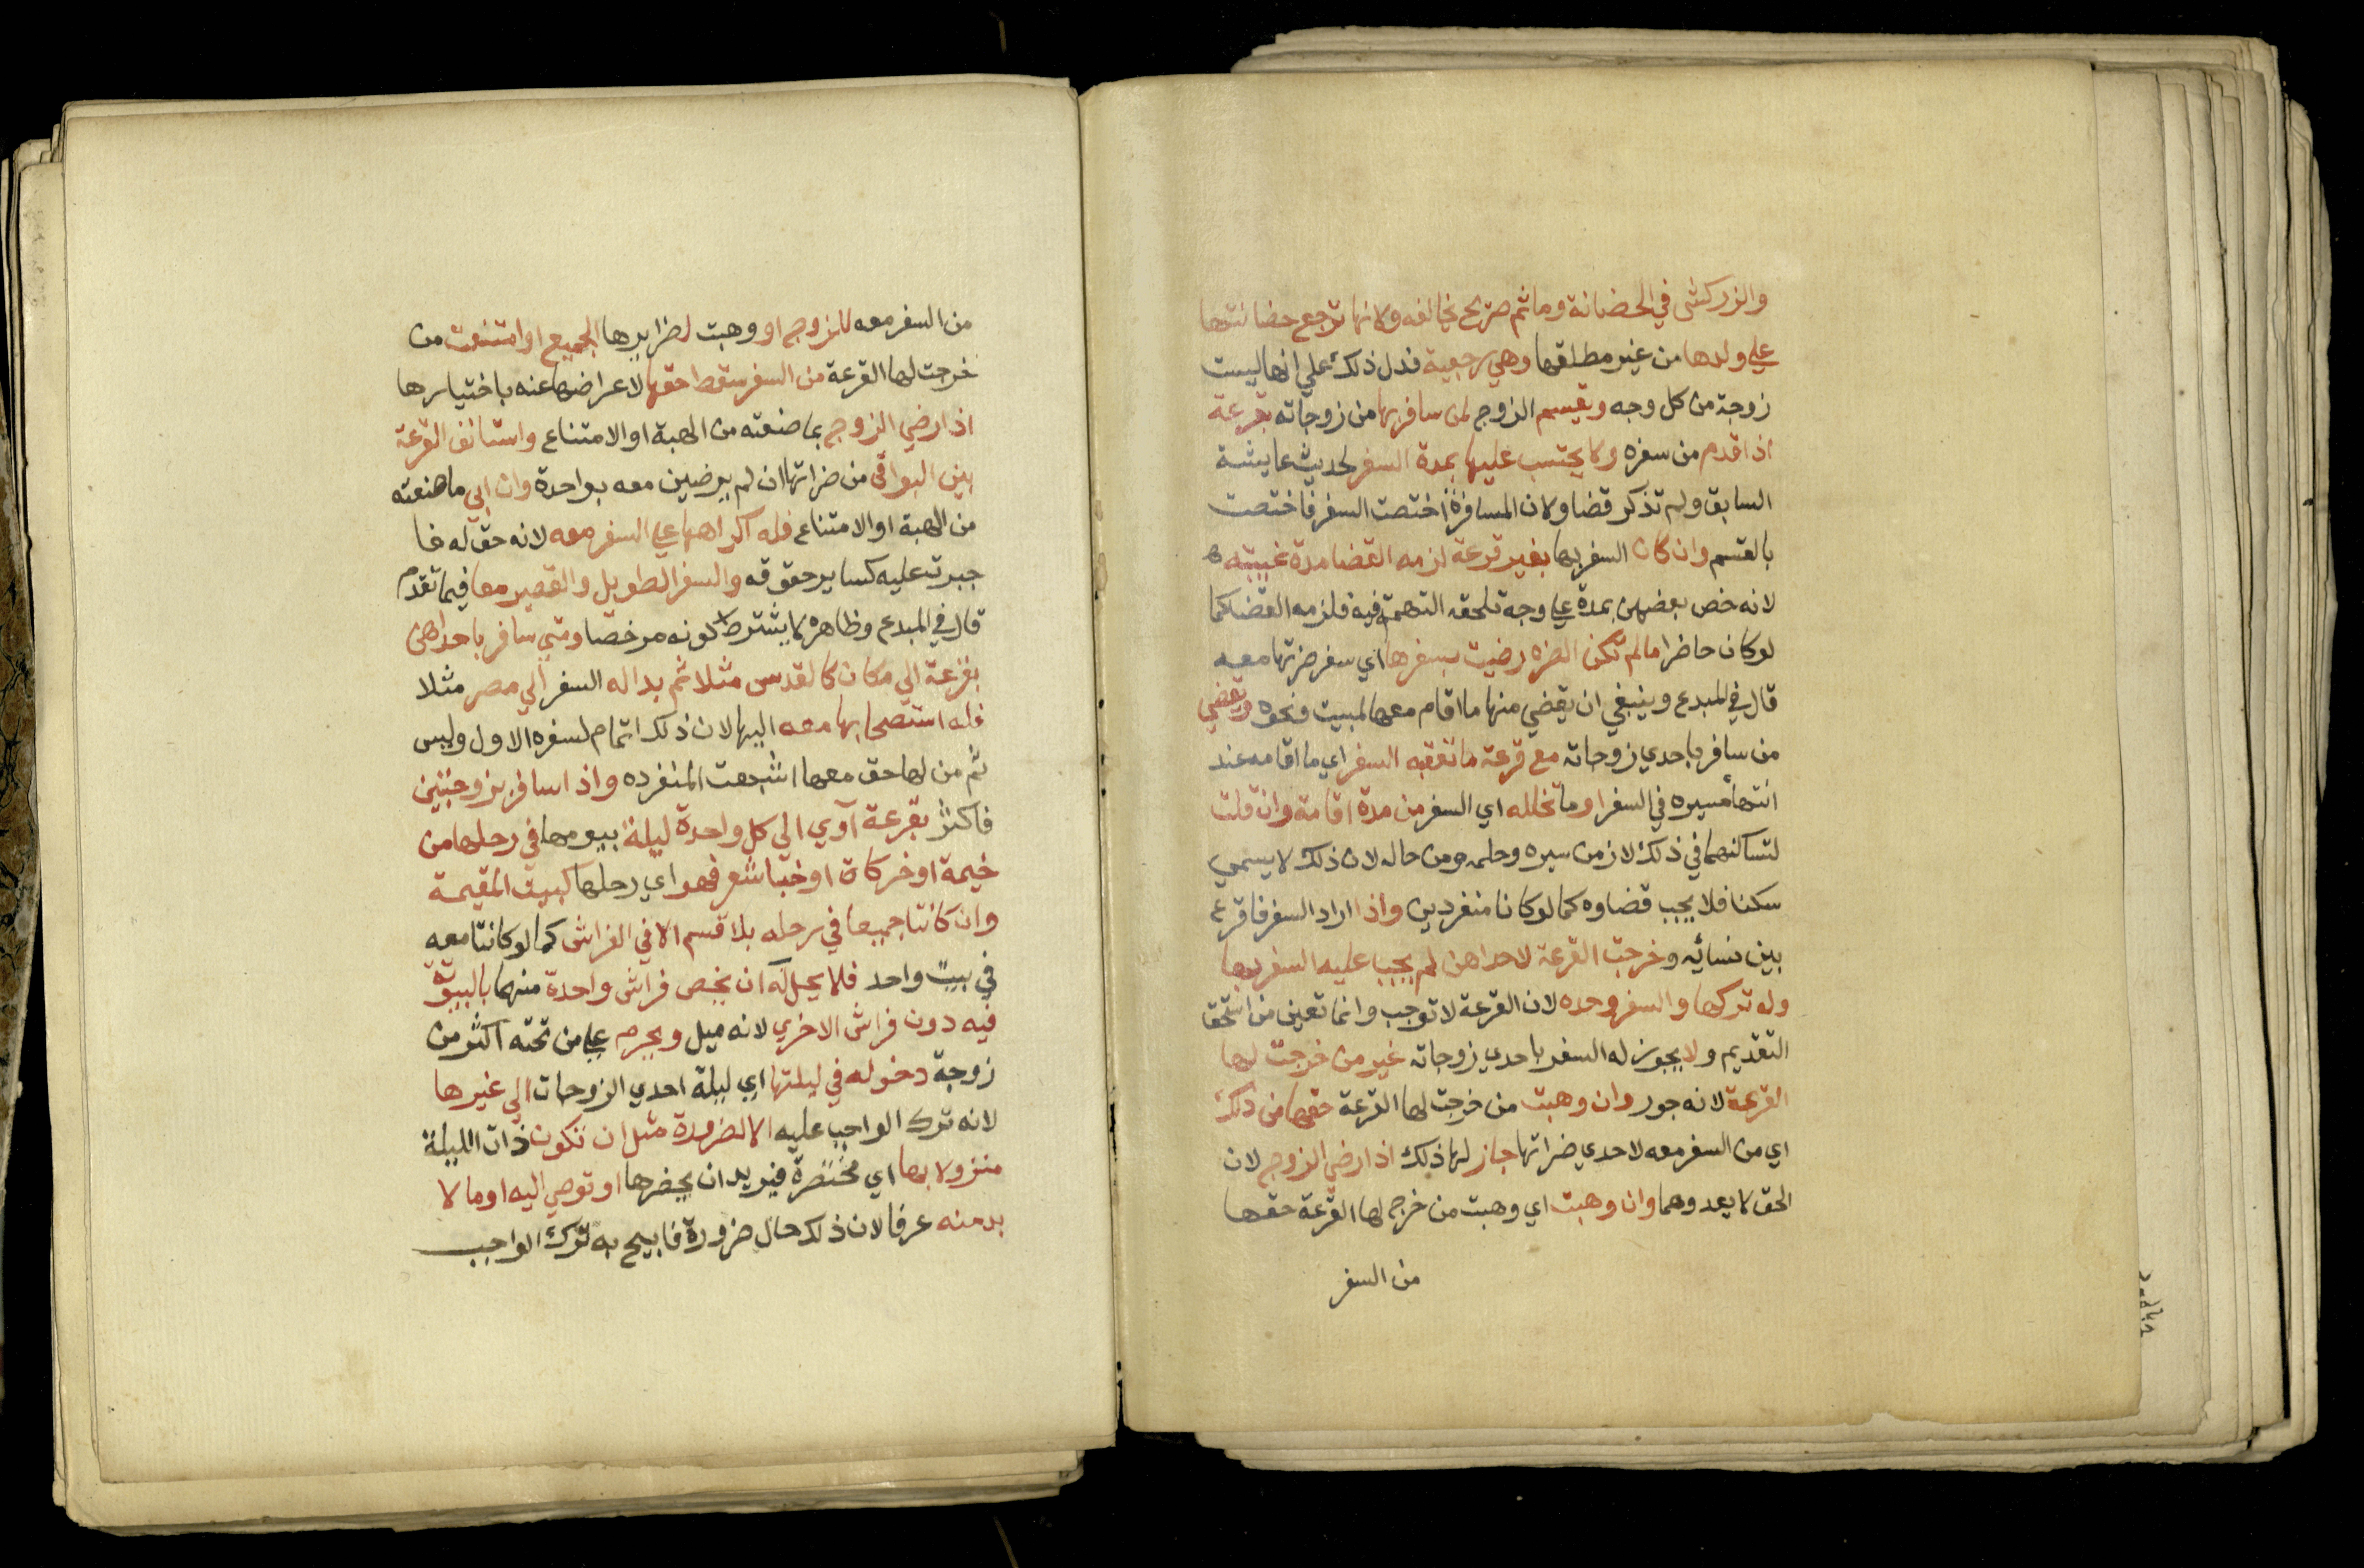 والزركشي في الحضانة وما ثم صريح يخالفه ولانها ترجع حضانتها
علي ولدها من غير مطلقها وهي رجعية فدل ذلك علي انها ليست
زوجة من كل وجه ويقسم الزوج لمن سافر بها من زوجاته بقرعة
اذا قدم من سفره ولا يحتسب عليها بمدة السفر لحديث عايشة
السابق ولم تذكر قضا ولان المسافرة اختصت السفر فاختصت
بالقسم وان كان السفر بها بغير قرعة لزمه القضا مدة غيبته
لانه خص بعضهن بمدة علي وجه تلحقه التهمة فيه فلزمه القضا كما
لو كان حاضرا ما لم تكن الضره رضيت بسفرها اي سفر ضرتها معه
قال في المبدع وينبغي ان يقضي منها ما اقام معها لمبيت ونحوه ويقضي
من سافر باحدي زوجاته مع قرعة ما تعقبه السفر اي ما اقامه عند
انتهأ مسيره في السفر او ما تخلله اي السفر من مدة اقامة وان قلت
لتساكنهما في ذلك لا زمن سيره وحله من حاله لان ذلك لا يسمي
سكنا فلا يجب قضاوه كما لو كانا منفردين واذا اراد السفر فاقرع
بين نسائه وخرجت القرعة لاحداهن لم يجب عليه السفر بها
وله تركها والسفر وحده لان القرعة لا توجب وانما تعين من استحق
التقديم ولا يجوز له السفر باحدي زوجاته غير من خرجت لها
القرعة لانه جور وان وهبت من خرجت لها القرعة حقها من ذلك
اي من السفر معه لاحدي ضراتها جاز لها ذلك اذا رضي الزوج لان
الحق لا يعدوهما وان وهبت اي وهبت من خرج لها القرعة حقها
من السفر
من السفر معه للزوج او وهبت لضرايرها الجميع او امتنعت من
خرجت لها القرعة من السفر سقط حقها لاعراضها عنه باختيارها
اذا رضي الزوج بما صنعته من الهبة او الامتناع واستانف القرعة
بين البواقي من ضراتها ان لم يرضين معه بواحدة وان ابي ما صنعته
من الهبة او الامتناع فله اكراهها علي السفر معه لانه حق له فا
جبرت عليه كساير حقوقه والسفر الطويل والقصير معا فيما تقدم
قال في المبدع وظاهره لا يشترط كونه مرخصا ومتي سافر باحداهن
بقرعة الي مكان كالقدس مثلا ثم بدا له السفر الي مصر مثلا
فله استصحابها معه اليها لان ذلك اتمام لسفره الاول وليس
ثم من لها حق معها اشبهت المنفرده واذا سافر بزوجتين
فاكثر بقرعة آوي الي كل واحدة ليلة بيومها في رحلها من
خيمة او خركاة او خبا شعر فهو اي رحلها كبيت المقيمة
وان كانتا جميعا في رحله بلا قسم الا في الفراش كما لو كانتا معه
في بيت واحد فلا يحل له ان يخص فراش واحدة منهما بالبيتوتة
فيه دون فراش الاخري لانه ميل ويحرم علي من تحته اكثر من
زوجة دخوله في ليلتها اي ليلة احدي الزوجات الي غيرها
لانه ترك الواجب عليه الا لضرورة مثل ان تكون ذات الليلة
منزولا بها اي محتضرة فيريد ان يحضرها او توصي اليه او ما لا
بد منه عرفا لان ذلك حال ضرورة فابيح به ترك الواجب